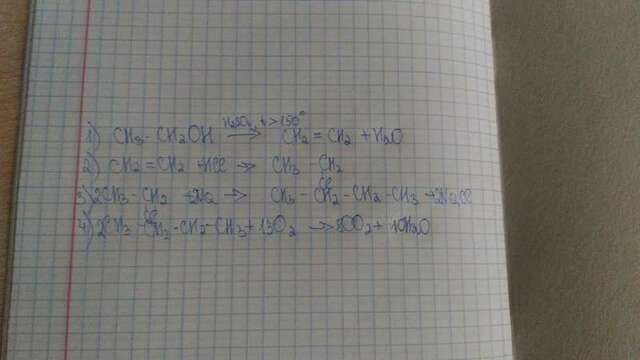 1) CH3-CH2OH H2SO4, t>150° → CH2=CH2 + H2O
2) CH2=CH2 +HCl → CH3 - CH2
Cl
3) 2CH3-CH2 +Na → CH3-CH2-CH2-CH3 +2NaCl
Cl
4) 2CH3-CH2-CH2-CH3 + 13O2 → 8CO2 + 10H2O